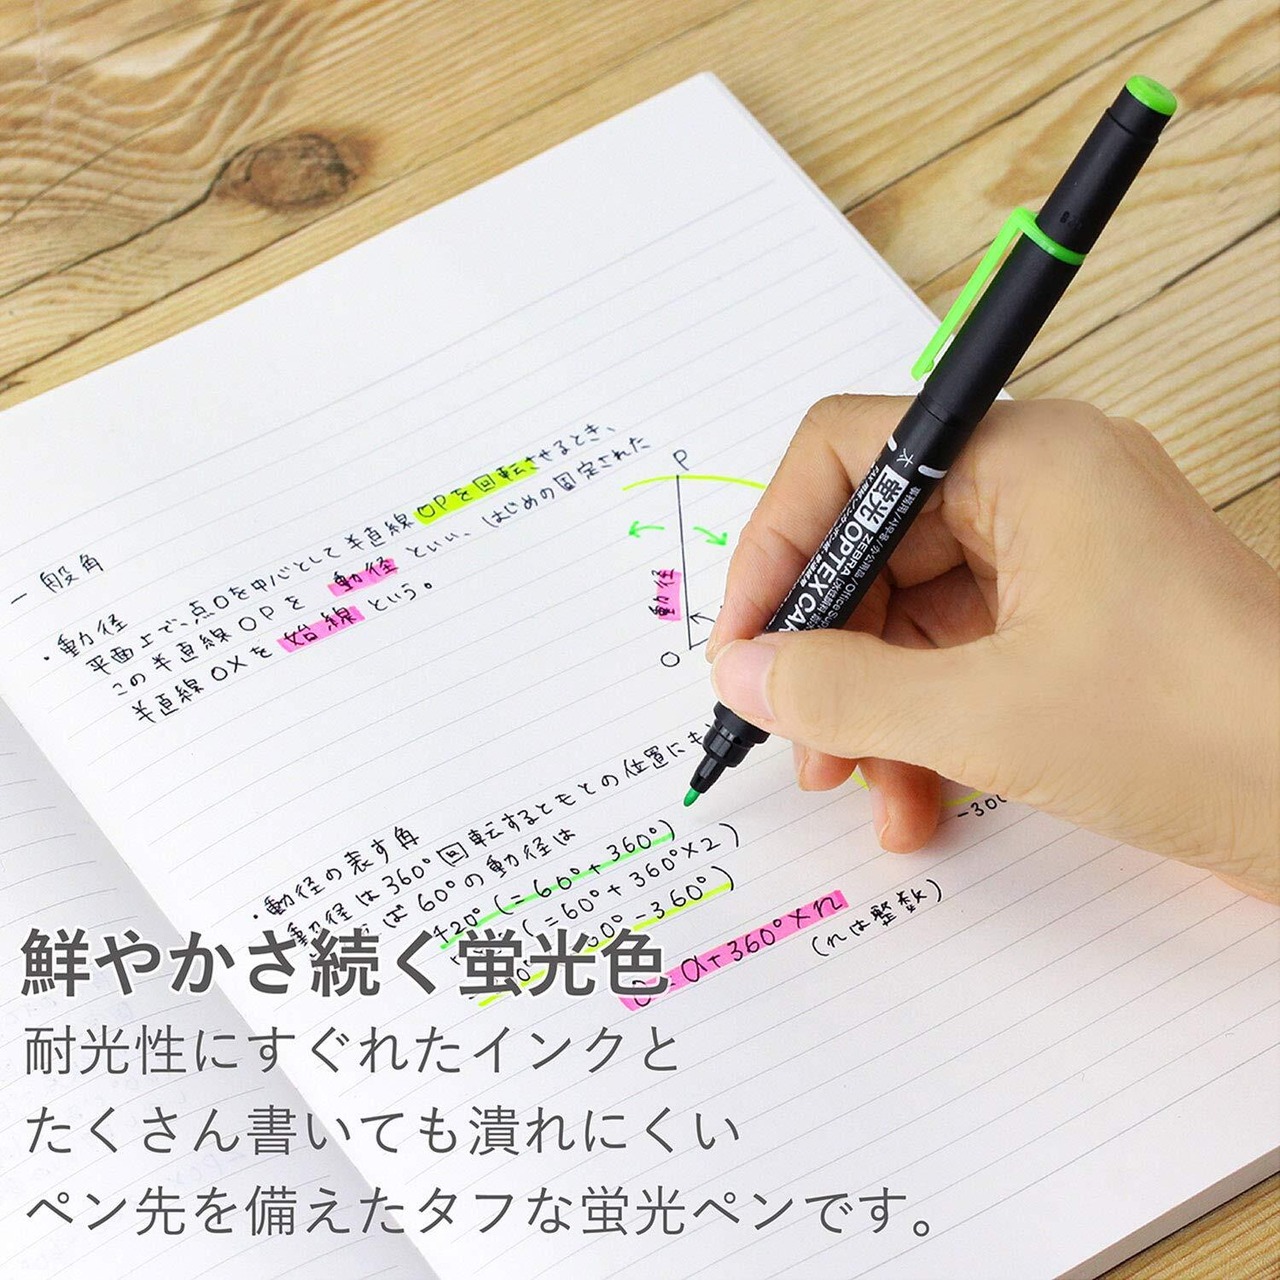 一般角
・動径
平面上で、点Oを中心として半直線OPを回転させるとき、
この半直線OPを 動径 といい、はじめの固定された
半直線OXを 始線 という。
P
動径
O
・動径の表す角
動径は360°回転するともとの位置にも
ば60°の動径は
420°(=60°+360°)
(=60°+360°×2)
60°-360°)
-300
α+360°×n
(nは整数)
太
蛍光 OPTEX CAR
ZEBRA
事務用/사무용/办公用品/Office Su
鮮やかさ続く蛍光色
耐光性にすぐれたインクと
たくさん書いても潰れにくい
ペン先を備えたタフな蛍光ペンです。